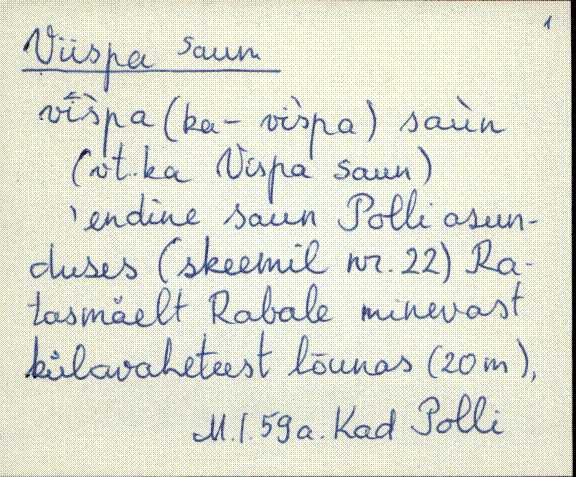 1
Viispa saun
vīs̀pa (ka- vis̀pa) saùn
(vt. ka Vispa saun)
'endine saun Polli asun-
duses (skeemil nr. 22) Ra-
tasmäelt Rabale minevast
külavaheteest lõunas (20 m),
M.I. 59 a. Kad Polli